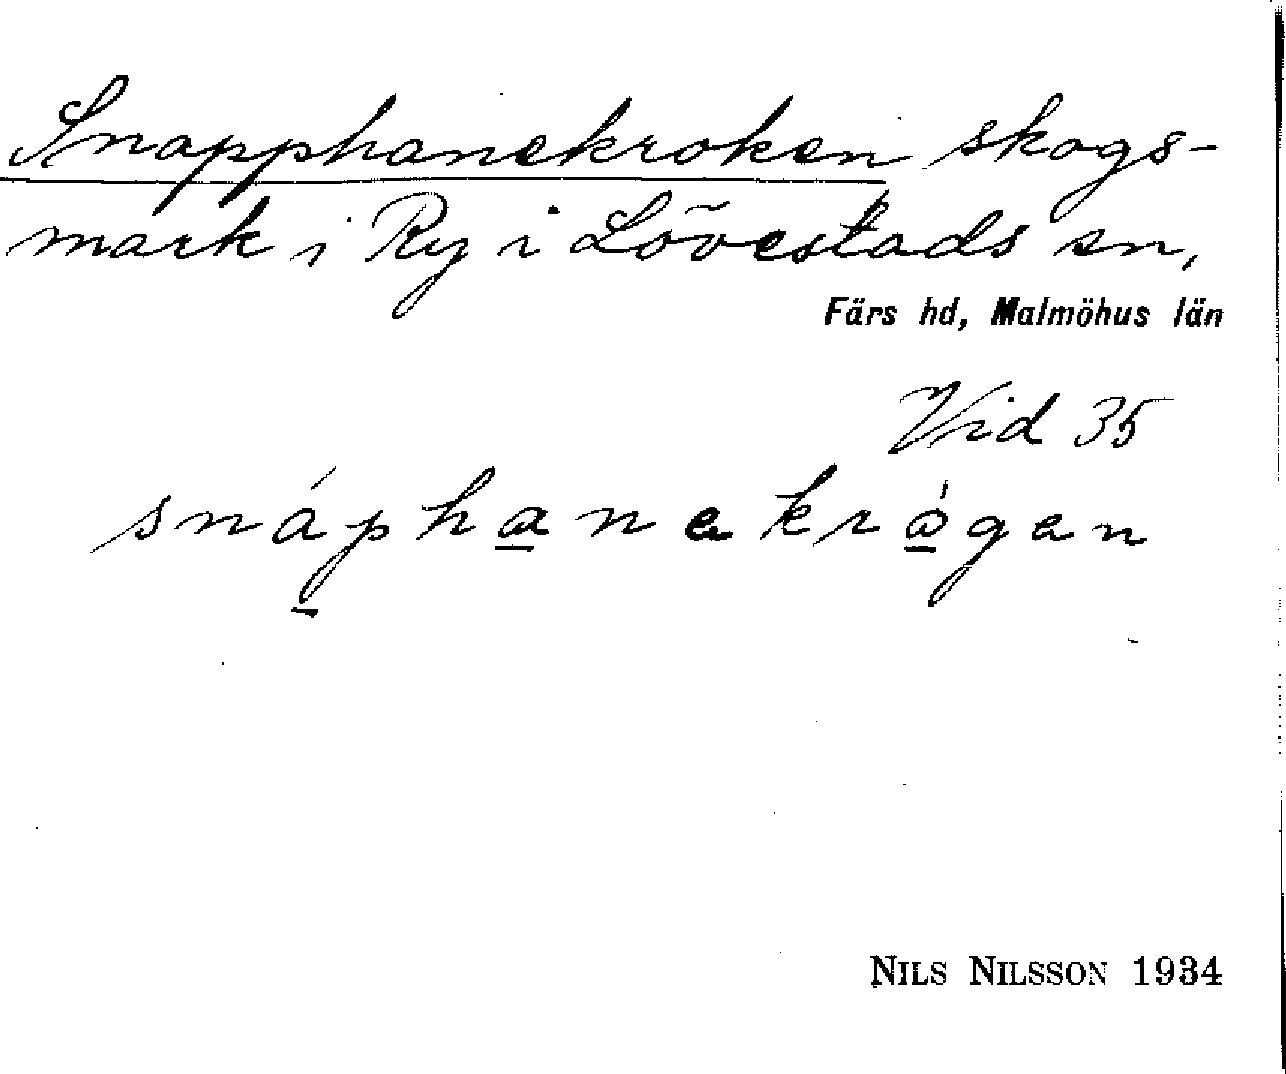 Snapphanekroken skogs-
mark i Ry i Lövestads sn,
Färs hd, Malmöhus län
Vid 35
snáp̱ha̱nekrò̱gen
NILS NILSSON 1934